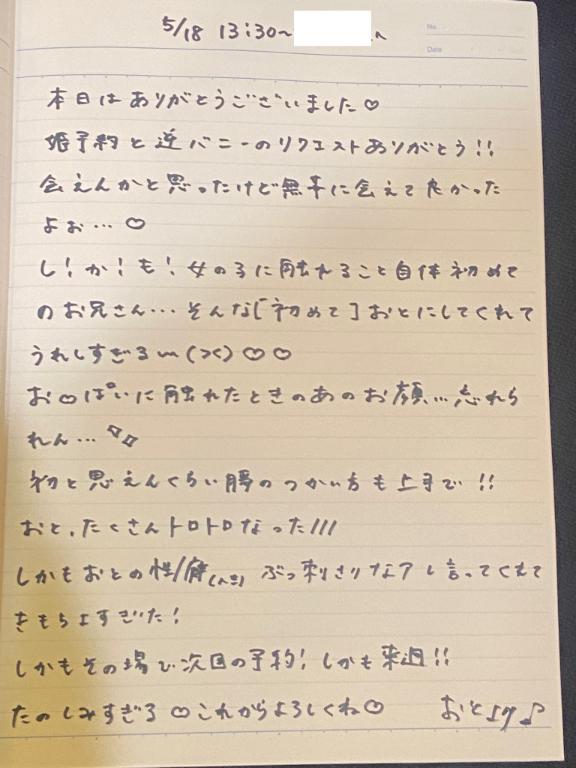 5/18 13:30〜 へ
No.
Date
本日はありがとうございました♡
姫予約と逆バニーのリクエストありがとう!!
会えんかと思ったけど無事に会えて良かった
よぉ…♡
し!か!も!女の子に触れること自体初めて
のお兄さん…そんな[初めて]おとにしてくれて
うれしすぎるm(><)♡♡
お♡ぱいに触れたときのあのお顔…忘れら
れん…
初と思えんくらい腰のつかい方も上手で!!
おと、たくさんトロトロなった///
しかもおとの性/癖 ぶっ刺さりなアレ言ってくれて
きもちよすぎた!
しかもその場で次回の予約!しかも来週!!
たのしみすぎる♡これからよろしくね♡ おとより♪